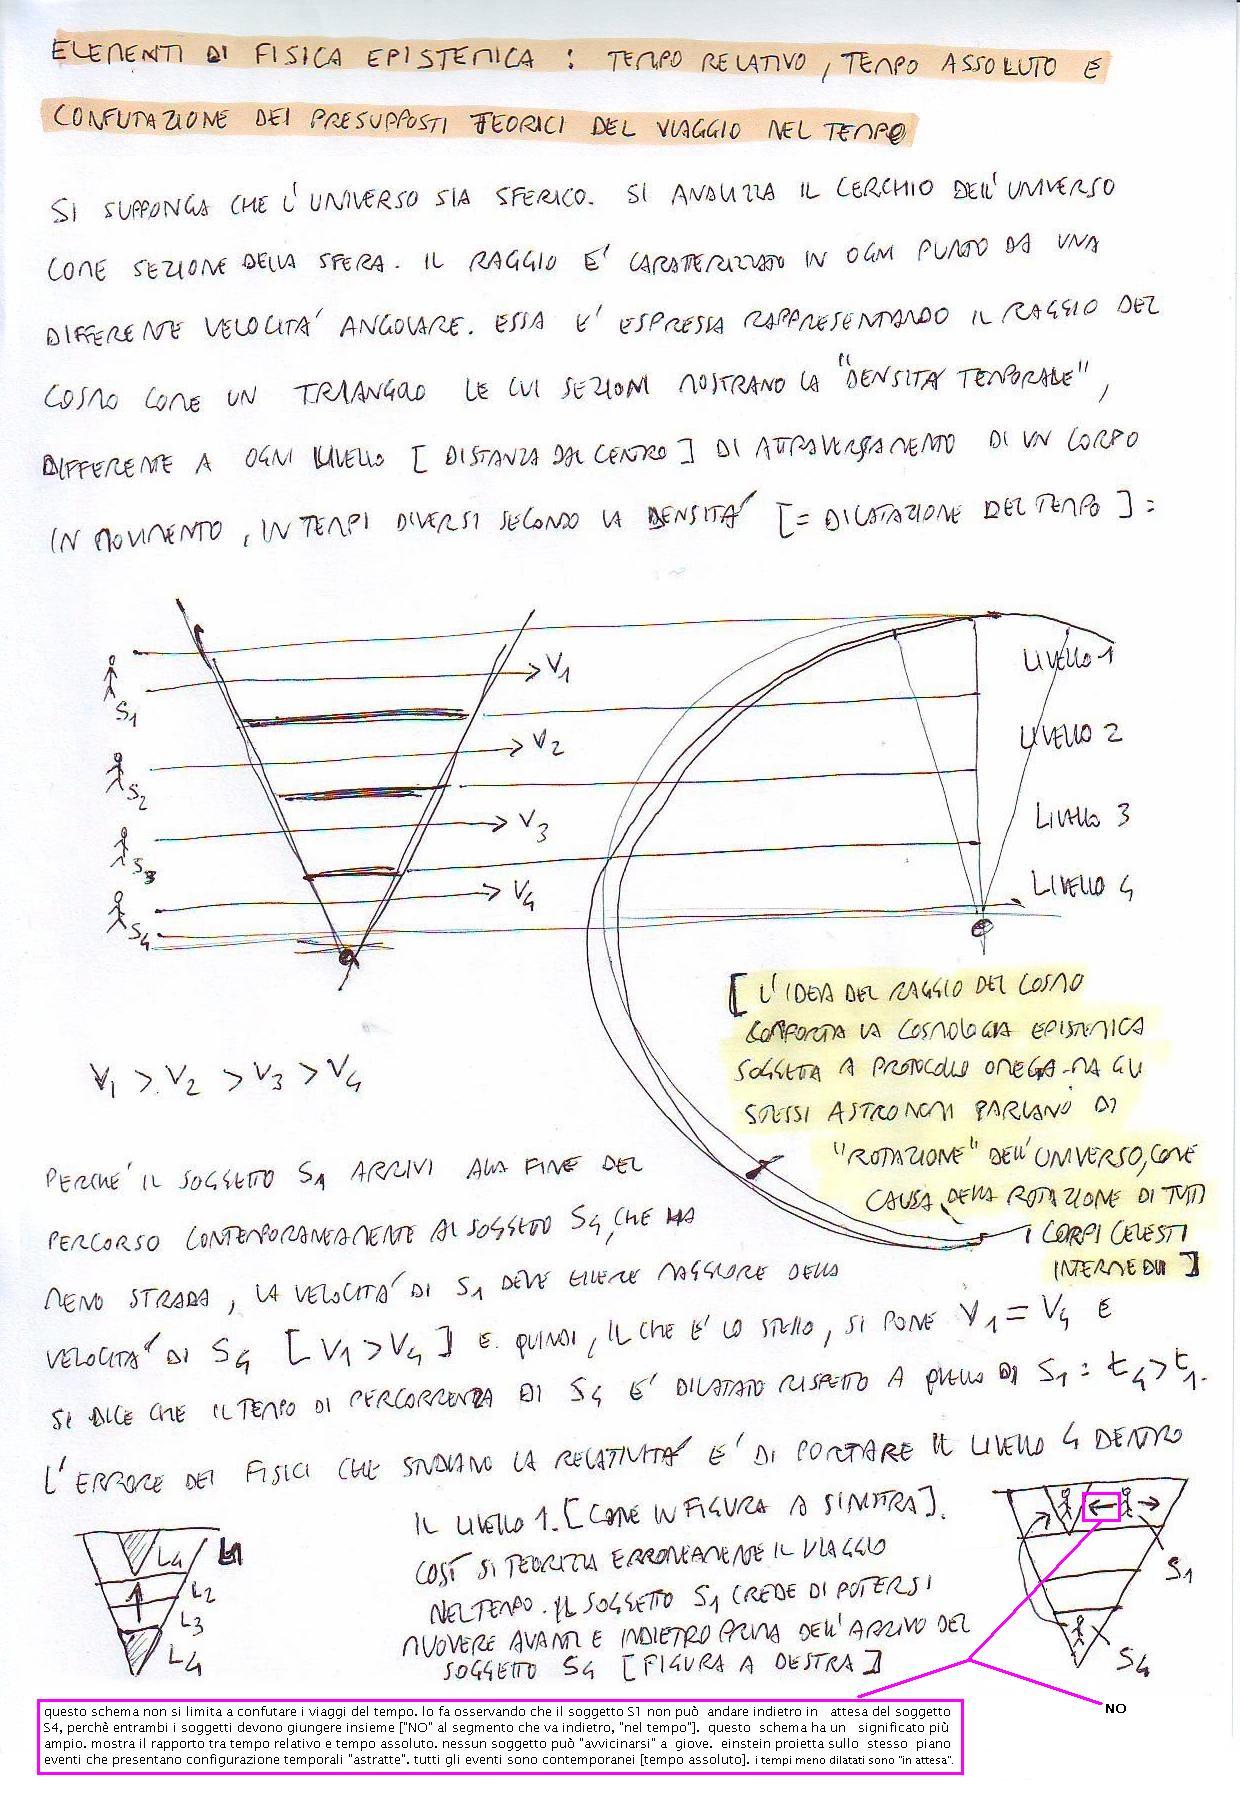 ELEMENTI DI FISICA EPISTEMICA : TEMPO RELATIVO, TEMPO ASSOLUTO E
CONFUTAZIONE DEI PRESUPPOSTI TEORICI DEL VIAGGIO NEL TEMPO
SI SUPPONGA CHE L'UNIVERSO SIA SFERICO. SI ANALIZZA IL CERCHIO DELL'UNIVERSO
COME SEZIONE DELLA SFERA. IL RAGGIO E' CARATTERIZZATO IN OGNI PUNTO DA UNA
DIFFERENTE VELOCITA' ANGOLARE. ESSA E' ESPRESSA RAPPRESENTANDO IL RAGGIO DEL
COSMO COME UN TRIANGOLO LE CUI SEZIONI MOSTRANO LA "DENSITA' TEMPORALE",
DIFFERENTE A OGNI LIVELLO [ DISTANZA DAL CENTRO ] DI ATTRAVERSAMENTO DI UN CORPO
IN MOVIMENTO, IN TEMPI DIVERSI SECONDO LA DENSITA' [ = DILATAZIONE DEL TEMPO ] :
S1
V1
LIVELLO 1
S2
V2
LIVELLO 2
S3
V3
LIVELLO 3
S4
V4
LIVELLO 4
[ L'IDEA DEL RAGGIO DEL COSMO
COMPORTA LA COSMOLOGIA EPISTEMICA
SOGGETTA A PROTOCOLLO OMEGA - MA GLI
STESSI ASTRONOMI PARLANO DI
"ROTAZIONE" DELL'UNIVERSO, COME
CAUSA DELLA ROTAZIONE DI TUTTI
I CORPI CELESTI
INTERMEDI ]
V1 > V2 > V3 > V4
PERCHE' IL SOGGETTO S1 ARRIVI ALLA FINE DEL
PERCORSO CONTEMPORANEAMENTE AL SOGGETTO S4, CHE HA
MENO STRADA, LA VELOCITA' DI S1 DEVE ESSERE MAGGIORE DELLA
VELOCITA' DI S4 [ V1 > V4 ] E QUINDI, IL CHE E' LO STESSO, SI PONE V1 = V4 E
SI DICE CHE IL TEMPO DI PERCORRENZA DI S4 E' DILATATO RISPETTO A QUELLO DI S1 : t4 > t1.
L'ERRORE DEI FISICI CHE STUDIANO LA RELATIVITA' E' DI PORTARE IL LIVELLO 4 DENTRO
IL LIVELLO 1. [ COME IN FIGURA A SINISTRA ].
COSI' SI TEORIZZA ERRONEAMENTE IL VIAGGIO
NEL TEMPO. IL SOGGETTO S1 CREDE DI POTERSI
MUOVERE AVANTI E INDIETRO PRIMA DELL'ARRIVO DEL
SOGGETTO S4 [ FIGURA A DESTRA ]
L4
L1
L2
L3
L4
S1
S4
NO
questo schema non si limita a confutare i viaggi del tempo. lo fa osservando che il soggetto S1 non può andare indietro in attesa del soggetto
S4, perchè entrambi i soggetti devono giungere insieme ["NO" al segmento che va indietro, "nel tempo"]. questo schema ha un significato più
ampio. mostra il rapporto tra tempo relativo e tempo assoluto. nessun soggetto può "avvicinarsi" a giove. einstein proietta sullo stesso piano
eventi che presentano configurazione temporali "astratte". tutti gli eventi sono contemporanei [tempo assoluto]. i tempi meno dilatati sono "in attesa".